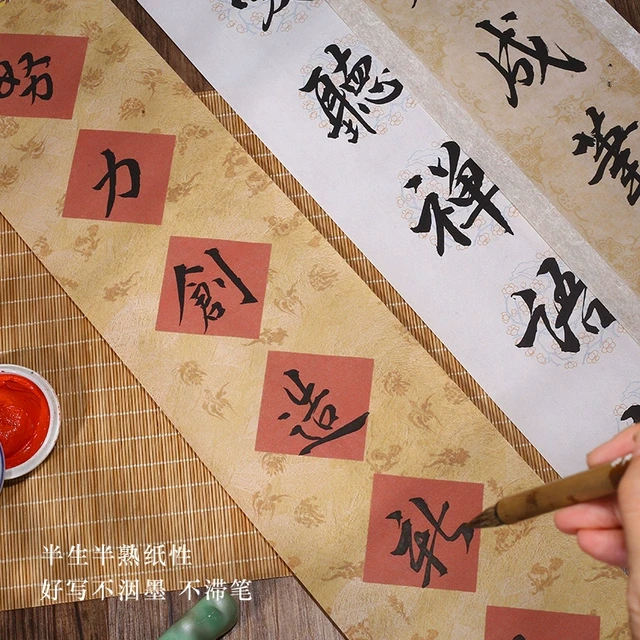 努力創造新
聽禪語
成筆
半生半熟纸性
好写不洇墨 不滞笔